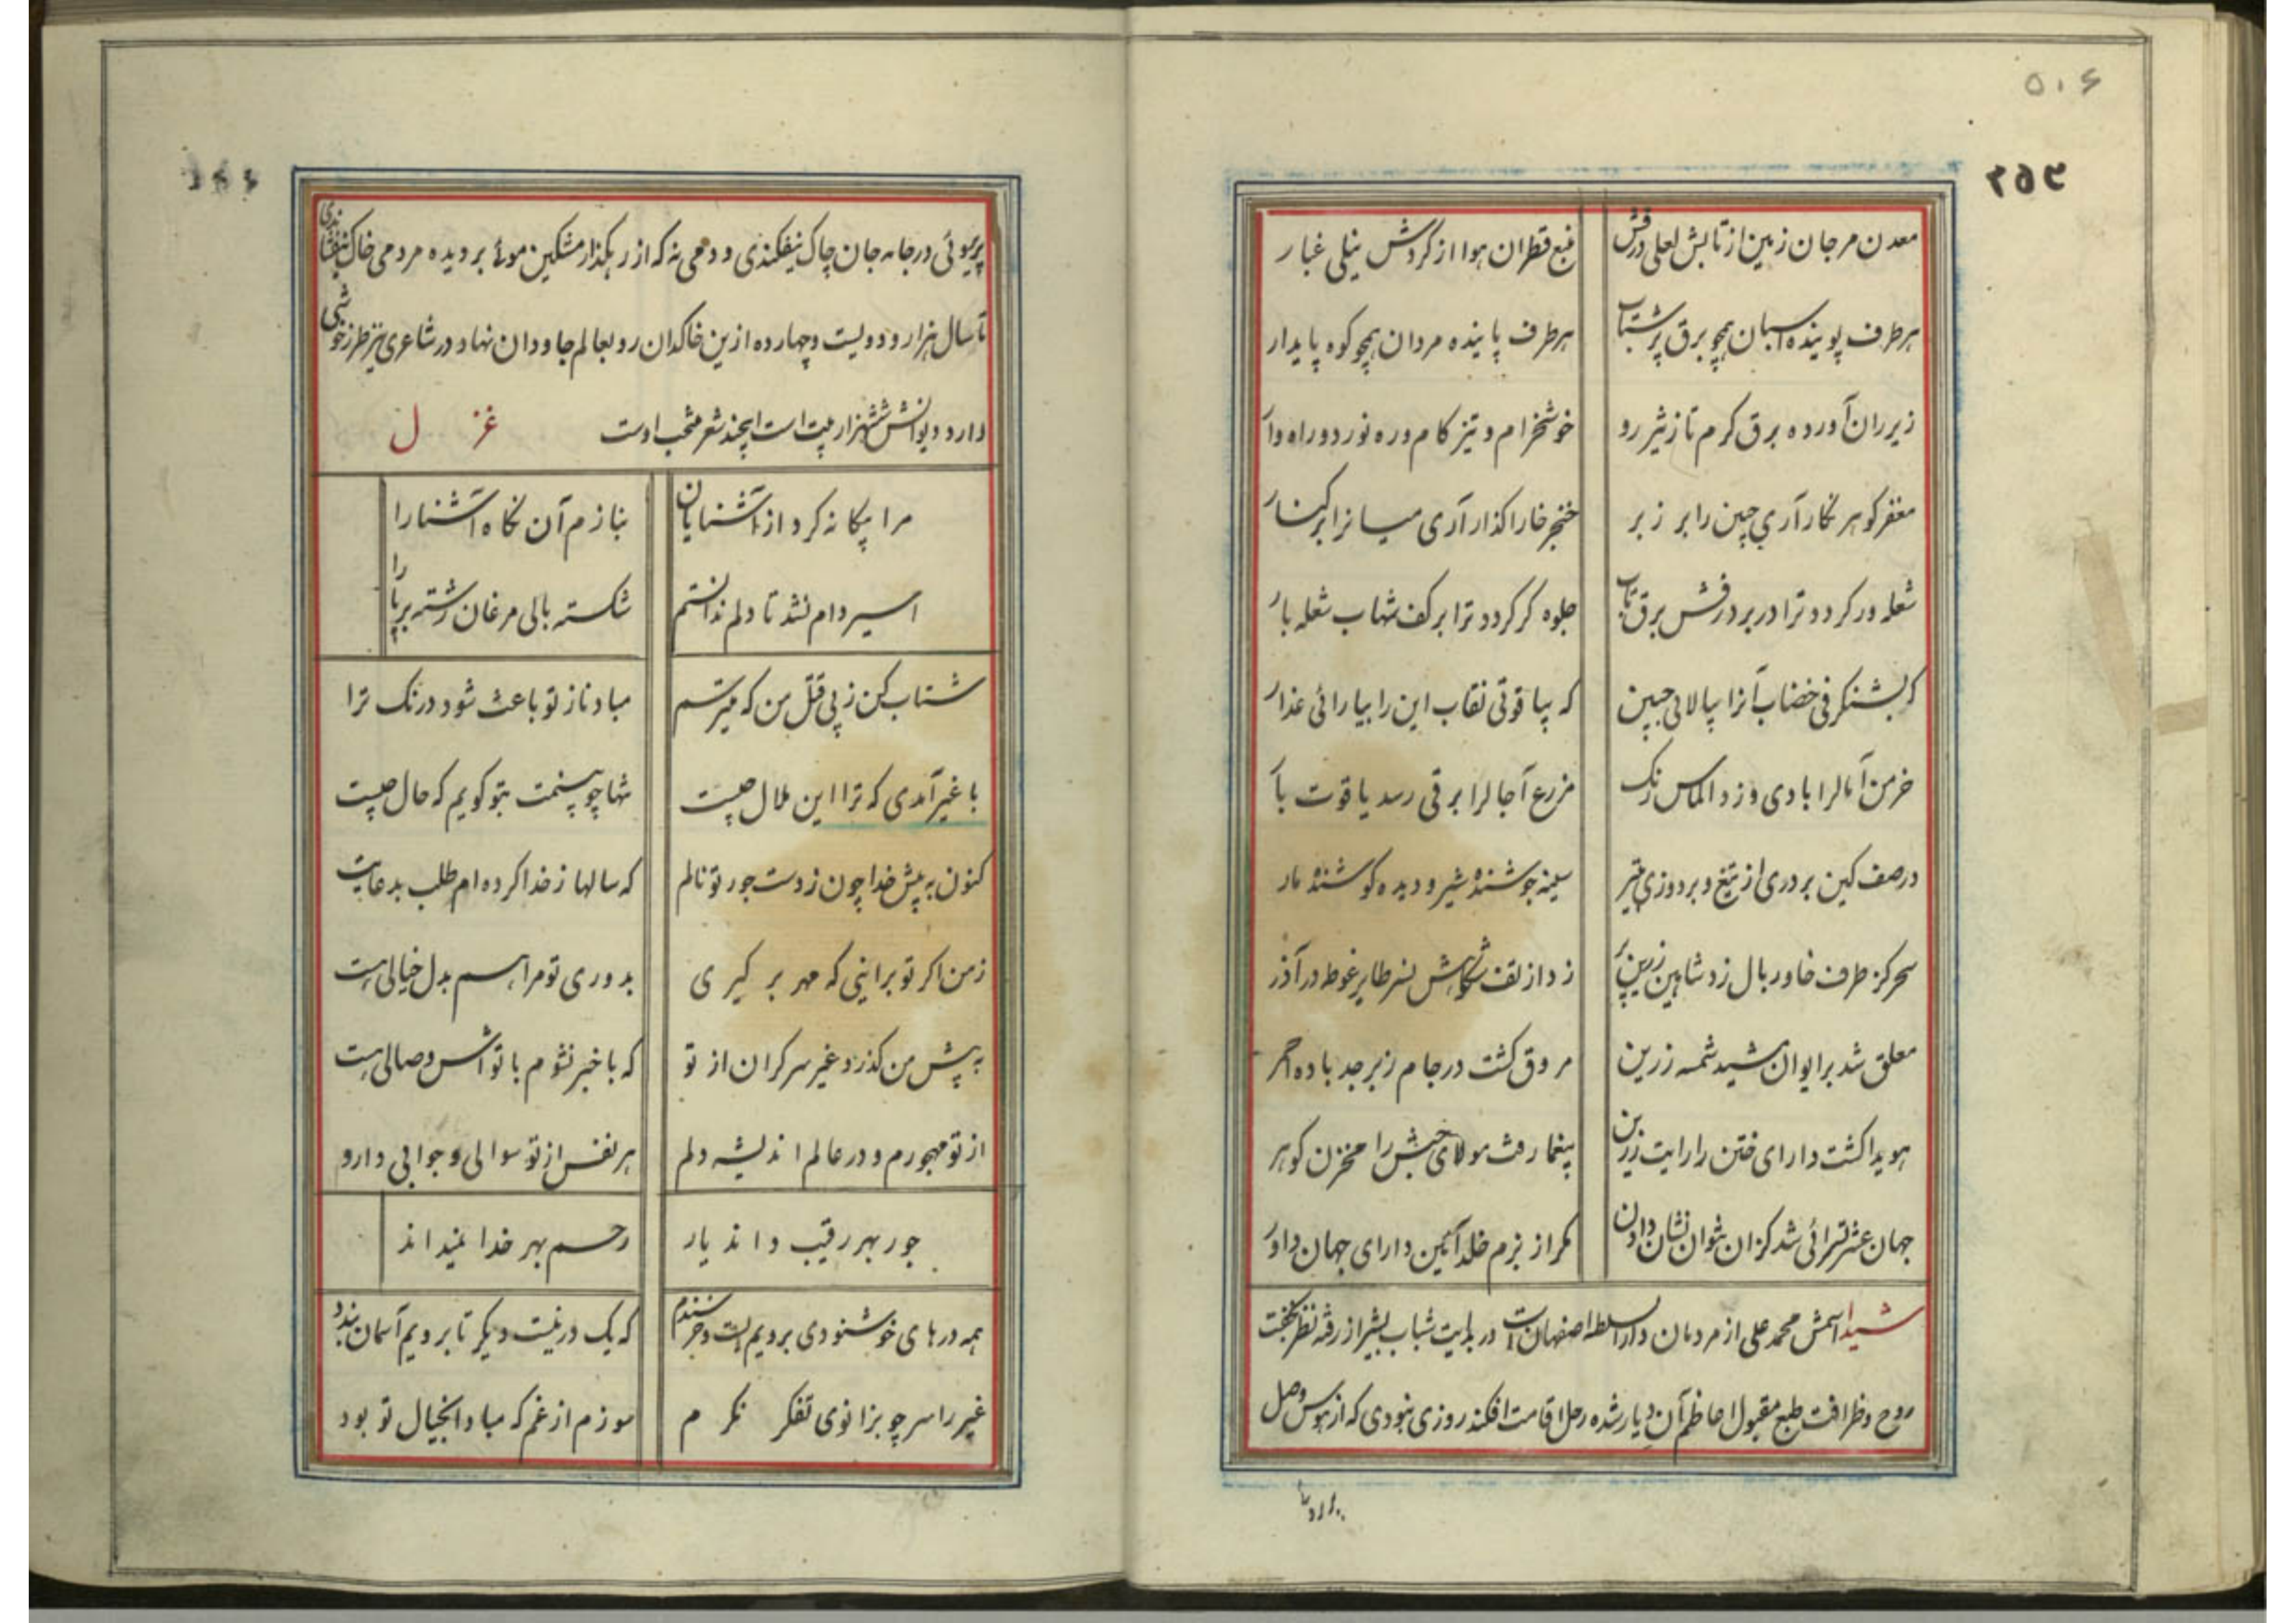 ۵۰۶
۲۵۳
معدن مرجان زمین از تابش لعلی درفش منبع قطران هوا از کردش نیلی غبار
هر طرف پوینده اسبان همچو برق پر شتاب هر طرف پاینده مردان همچو کوه پایدار
زیر ران آورده برق کرم تاز شیر رو خوشخرام و تیز کام و ره نورد و راه وار
مغفر کوهر نکار آری جبین را بر زبر خنجر خارا کذار آری میانرا بر کنار
شعله ور کردد ترا در بر درفش برق تاب جلوه کر کردد ترا بر کف شهاب شعله بار
که بشنکرفی خضاب آنرا بیالائی جبین که بیاقوتی نقاب این را بیارائی عذار
خرمن آمالرا بادی وزد الماس رنک مزرع آجالرا برقی رسد یاقوت بار
در صف کین بر دری از تیغ و بر دوزی بتیر سینه جوشنده شیر و دیده کوشنده مار
سحر کز طرف خاور بال زد شاهین زرین پر زد از تف شکوهش نسر طایر غوطه در آذر
معلق شد بر ایوان مشید شمسه زرین مروق کشت در جام زبرجد باده احمر
هویدا کشت دارای ختن را رایت زرین بیغما رفت مولای حبش را مخزن کوهر
جهان عشرتسرائی شد کزان نتوان نشان دادن مکر از بزم خلد آئین دارای جهان داور
شیدا اسمش محمد علی از مردمان دار السلطنه اصفهان است در بدایت شباب بشیراز رفته نظر بخفت
روح و ظرافت طبع مقبول اعاظم آن دیار شده رحل اقامت افکند روزی نبودی که از هوس وصل
پریروئی در جامه جان چاک نیفکندی و دمی نه که از رهکذار مشکین موئی بر دیده مردمی خاک نیفشاندی
تا سال هزار و دویست و چهارده ازین خاکدان رو بعالم جاودان نهاد در شاعری نیز طرز خوشی
دارد دیوانش ششهزار بیت است اینچند شعر منتخب اوست غزل
مرا بیکانه کرد از آشنایان بنازم آن نکاه آشنا را
اسیر دام نشد تا دلم ندانستم شکسته بالی مرغان رشته برپا را
شتاب کن ز پی قتل من که میترسم مباد ناز تو باعث شود درنک ترا
با غیر آمدی که ترا این ملال چیست تنها چو بینمت بتو کویم که حال چیست
کنون به پیش خدا چون ز دست جور تو نالم که سالها ز خدا کرده ام طلب بدعایت
ز من اکر تو برانی که مهر بر کیری بدوری تو مرا هم بدل خیالی هست
به پیش من کذرد غیر سرکران از تو که با خبر نشوم با تواش وصالی هست
از تو مهجورم و در عالم اندیشه دلم هر نفس از تو سوالی و جوابی دارد
جور بهر رقیب داند یار رحم بهر خدا نمیداند
همه درهای خوشنودی برویم بست و خرسندم که یک در نیست دیکر تا برویم آسمان بندد
غیر را سر چو بزانوی تفکر نکرم سوزم از غم که مبادا بخیال تو بود